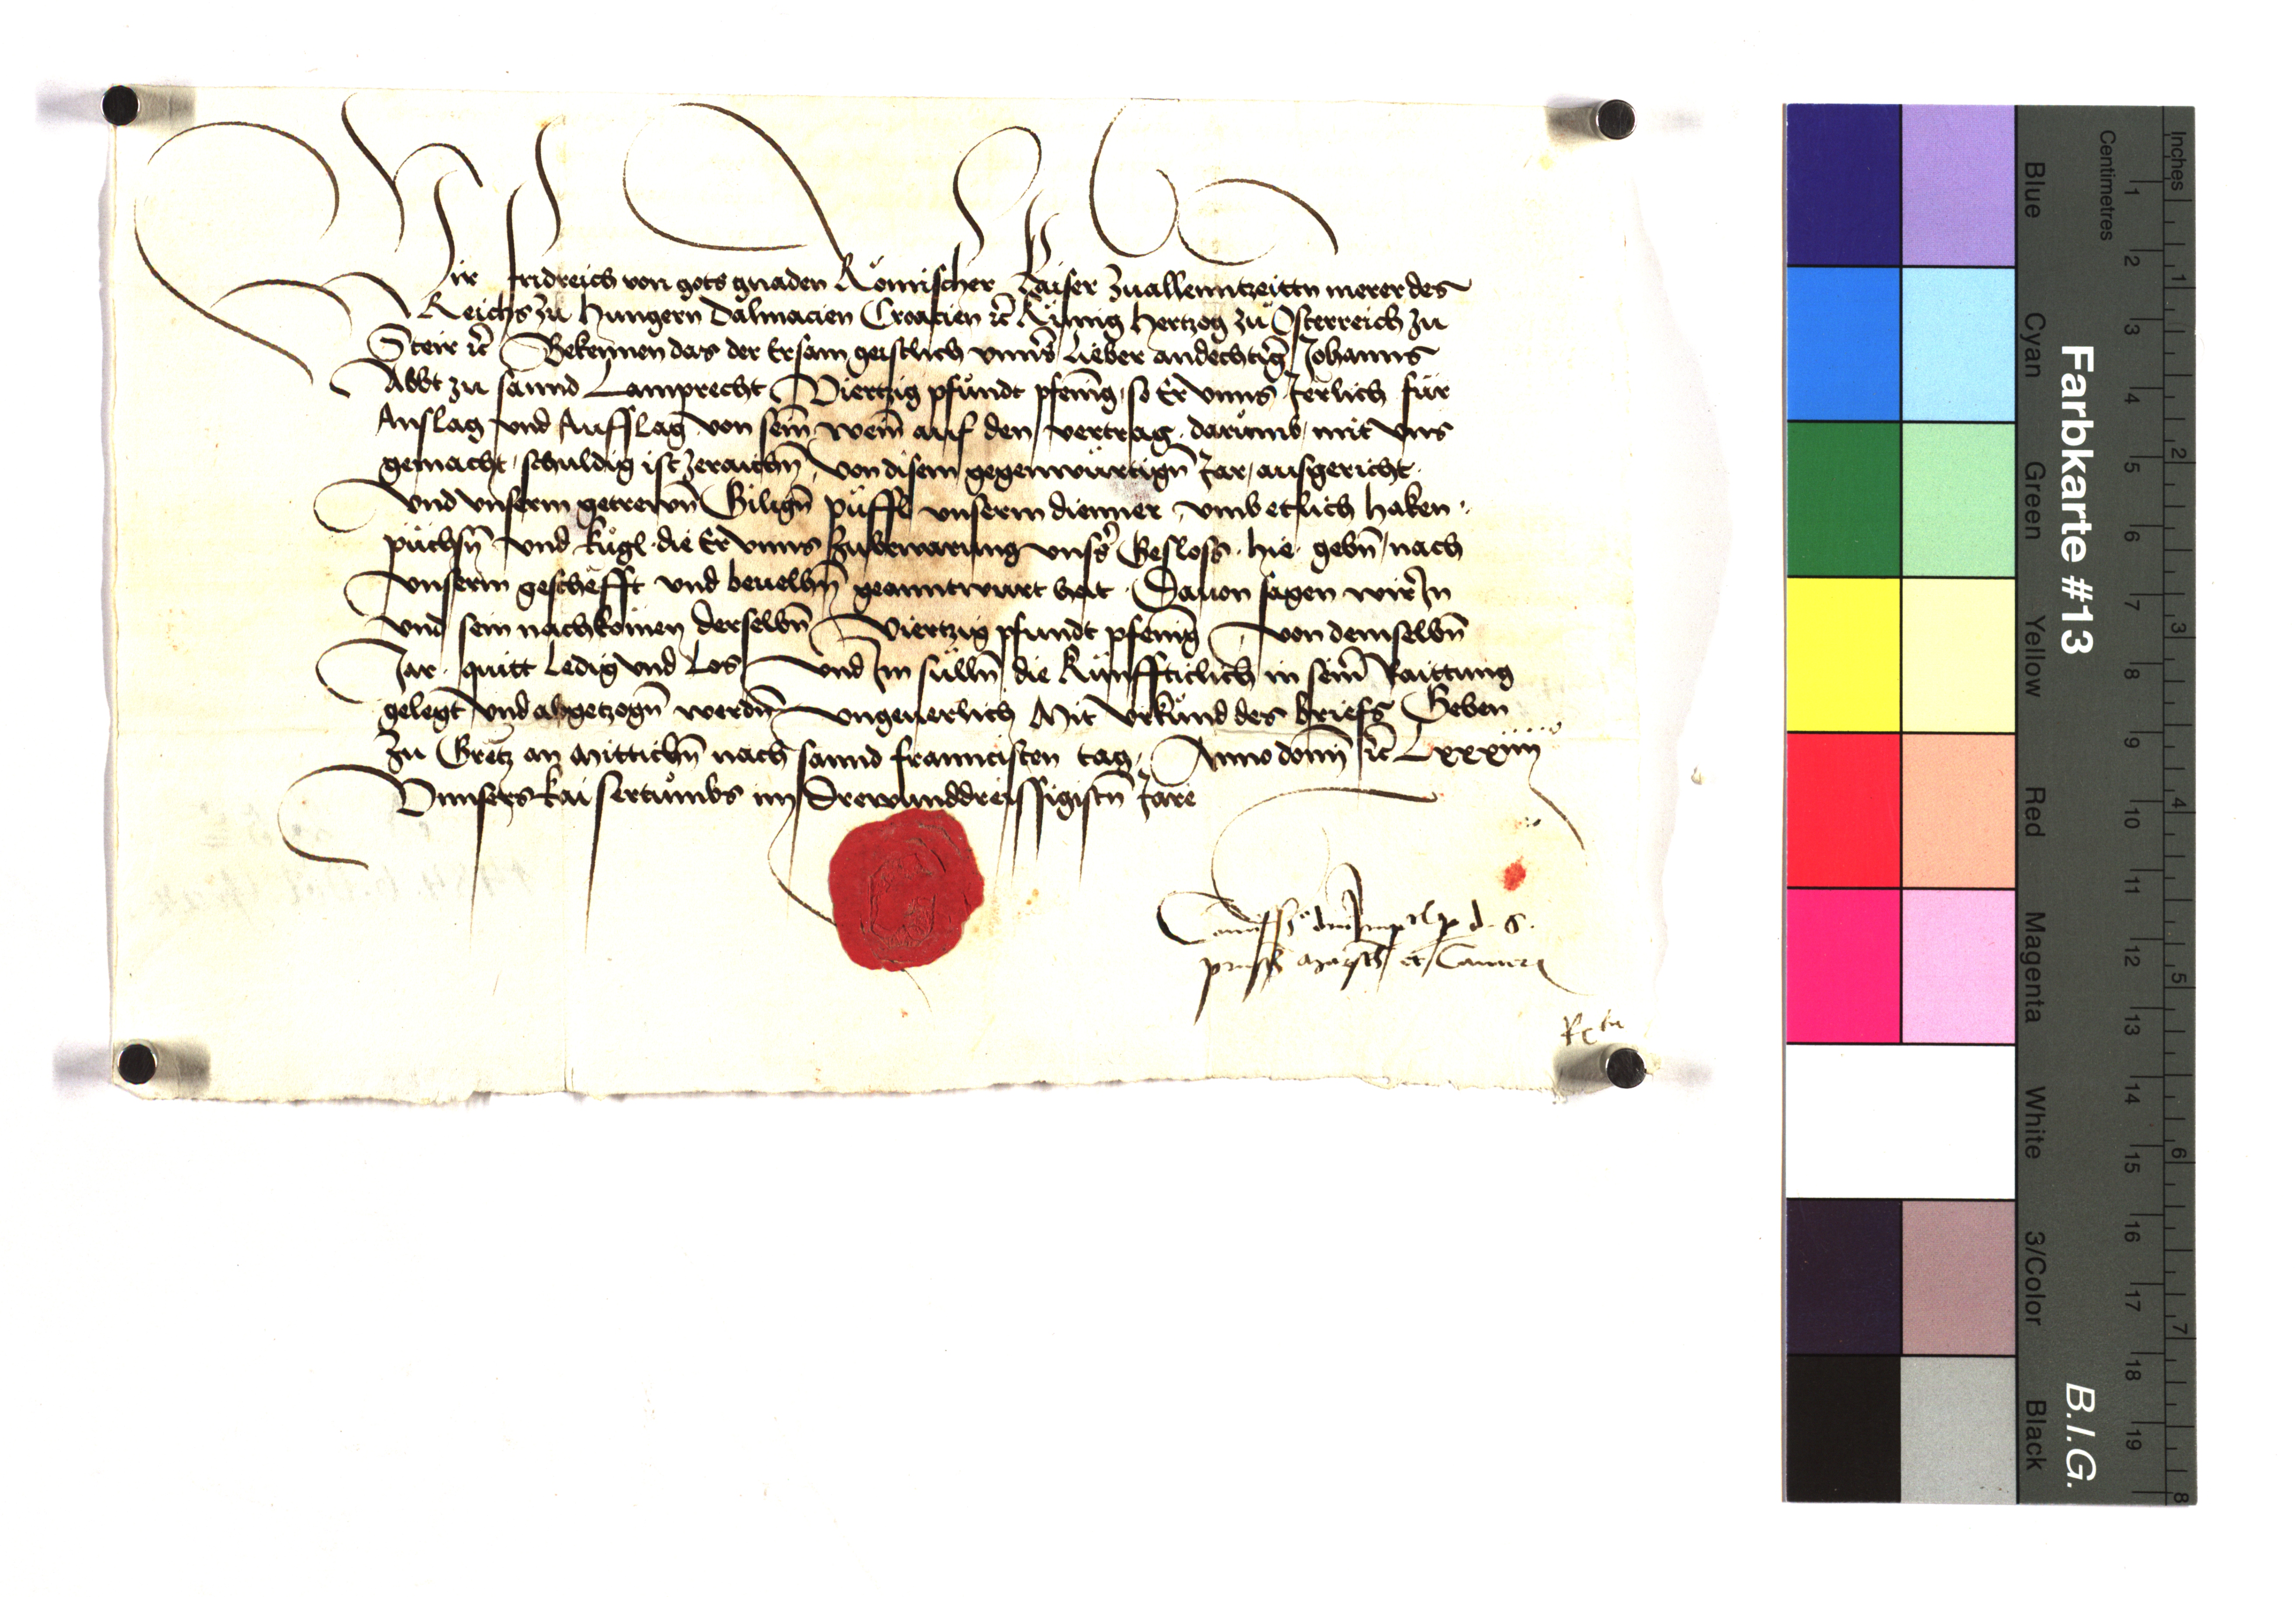 Wir fridreich von gots gnaden Römischer Kaiser zuallenntzeittn merer des
Reichs zu Hungern Dalmacien Croacien ꝛc̃ Künig Hertzog zu Osterreich zu
Steir ꝛc̃ Bekennen das der Ersam geistlich vnnsʼ lieber andechtig̃ Johanns
Abbt zu sannd Lamprecht Viertzig pfundt pfenīg so Er vnns Jerlich für
Anslag vnd Aufslag von sein̄ wein̄ auf den vertrag darumb mit vns
gemacht schuldig ist zeraichn̄ von disem gegenwürtign̄ Jar ausgericht
vnd vnserm getrewn̄ Gilign̄ püffl vnserm dienner vmb etlich haken
püchsn̄ vnd kugl die Er vnns zubewarung vnsʼs Gesloss hie gebn̄ nach
vnserm geschefft vnd beuelhn̄ geanntwurt hat Dauon sagen wir In
vnd sein nachkomen derselbn̄ Viertzig pfundt pfenīg von demselbn̄
Jar quitt ledig vnd los vnd Im sülln̄ die Künffticlich in sein̄ Raittung
gelegt vnd abgetzogn̄ werdn̄ vngeuerlich Mit vrkund des briefs Geben
zu Gretz an Mittichn̄ nach sannd franncisten tag Anno domī ꝛc̃ Lxxxiiii
Vnnsers kaisertumbs im drewunddreissigistn̄ Jare
d. s.
Rta
Farbkarte #13
B.I.G.
Blue
Cyan
Green
Yellow
Red
Magenta
White
3/Color
Black
Centimetres
1 2 3 4 5 6 7 8 9 10 11 12 13 14 15 16 17 18 19
Inches
1 2 3 4 5 6 7 8